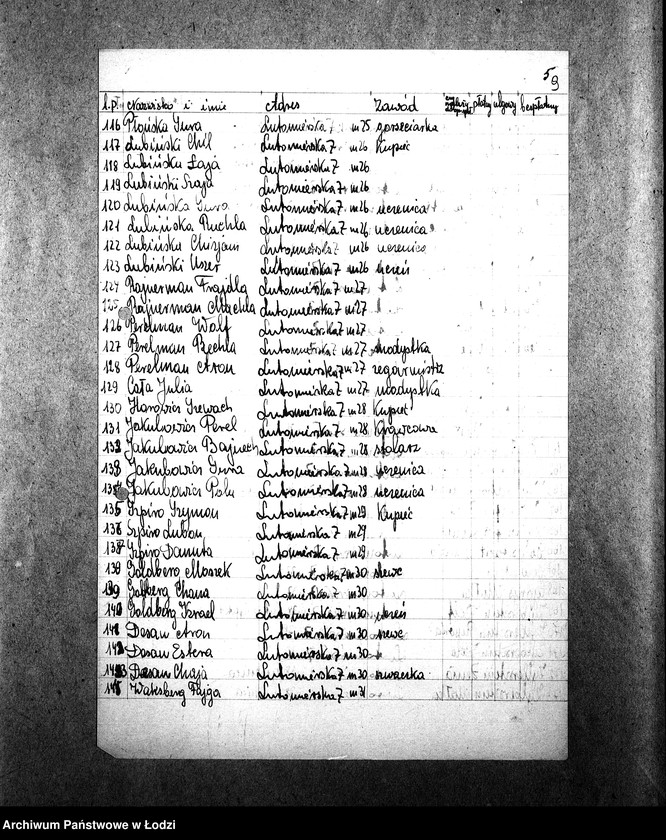 59
L.p. Nazwisko i imię Adres Zawód płatny ulgowy bezpłatny
116 Płońska Sura Lutomierska 7 m 25 gorseciarka
117 Lubiński Chil Lutomierska 7 m 26 Kupiec
118 Lubińska Łaja Lutomierska 7 m 26
119 Lubiński Szaja Lutomierska 7 m 26
120 Lubińska Sura Lutomierska 7 m 26 uczenica
121 Lubińska Ruchla Lutomierska 7 m 26 uczenica
122 Lubińska Lutomierska 7 m 26 uczenica
123 Lubiński Uszer Lutomierska 7 m 26 uczeń
124 Rajzerman Frajdla Lutomierska 7 m 27
125 Rajzerman Machla Lutomierska 7 m 27
126 Perelman Wolf Lutomierska 7 m 27
127 Perelman Rechla Lutomierska 7 m 27 modystka
128 Perelman Aron Lutomierska 7 m 27 zegarmistrz
129 Cała Julia Lutomierska 7 m 27 modystka
130 Lutomierska 7 m 28 Kupiec
131 Jakubowicz Perel Lutomierska 7 m 28 Krawcowa
132 Jakubowicz Lutomierska 7 m 28 stolarz
133 Jakubowicz Sura Lutomierska 7 m 28 uczenica
134 Jakubowicz Pola Lutomierska 7 m 28 uczenica
135 Szpiro Szymon Lutomierska 7 m 29 Kupiec
136 Szpiro Lutomierska 7 m 29
137 Szpiro Danuta Lutomierska 7 m 29
138 Goldberg Moszek Lutomierska 7 m 30 szewc
139 Golberg Chana Lutomierska 7 m 30
140 Goldberg Izrael Lutomierska 7 m 30 uczeń
141 Desan Aron Lutomierska 7 m 30 szewc
142 Desan Estera Lutomierska 7 m 30
143 Desan Chaja Lutomierska 7 m 30 szwaczka
Waksberg Fajga Lutomierska 7 m 31
Archiwum Państwowe w Łodzi